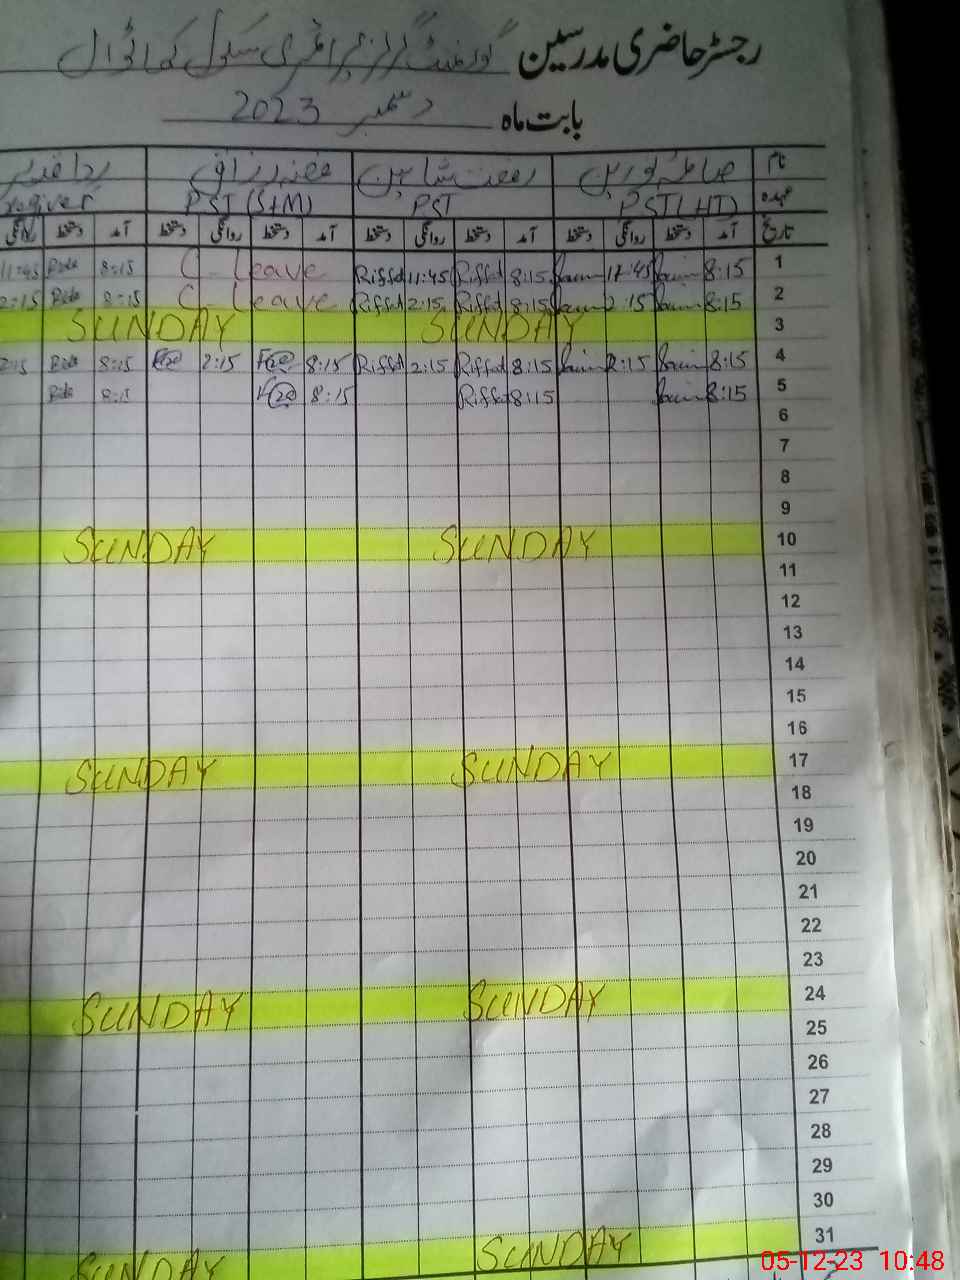 رجسٹر حاضری مدرسین گورنمنٹ گرلز پرائمری سکول
بابت ماہ دسمبر 2023
نام صائمہ نورین رفعت شاہین رزاق ردا قدیر
عہدہ PST(HT) PST PST(S+M)
تاریخ آمد دستخط روانگی دستخط آمد دستخط روانگی دستخط آمد دستخط روانگی دستخط آمد دستخط روانگی
1 8:15 11:45 8:15 Riffat 11:45 Riffat C-Leave 8:15 Rida 11:45
2 8:15 2:15 8:15 Riffat 2:15 Riffat C-Leave 8:15 Rida 2:15
3 SUNDAY SUNDAY
4 8:15 2:15 8:15 Riffat 2:15 Riffat 8:15 2:15 8:15 Rida 2:15
5 8:15 8:15 Riffat 8:15 8:15 Rida
6
7
8
9
10 SUNDAY SUNDAY
11
12
13
14
15
16
17 SUNDAY SUNDAY
18
19
20
21
22
23
24 SUNDAY SUNDAY
25
26
27
28
29
30
31 SUNDAY SUNDAY
05-12-23 10:48